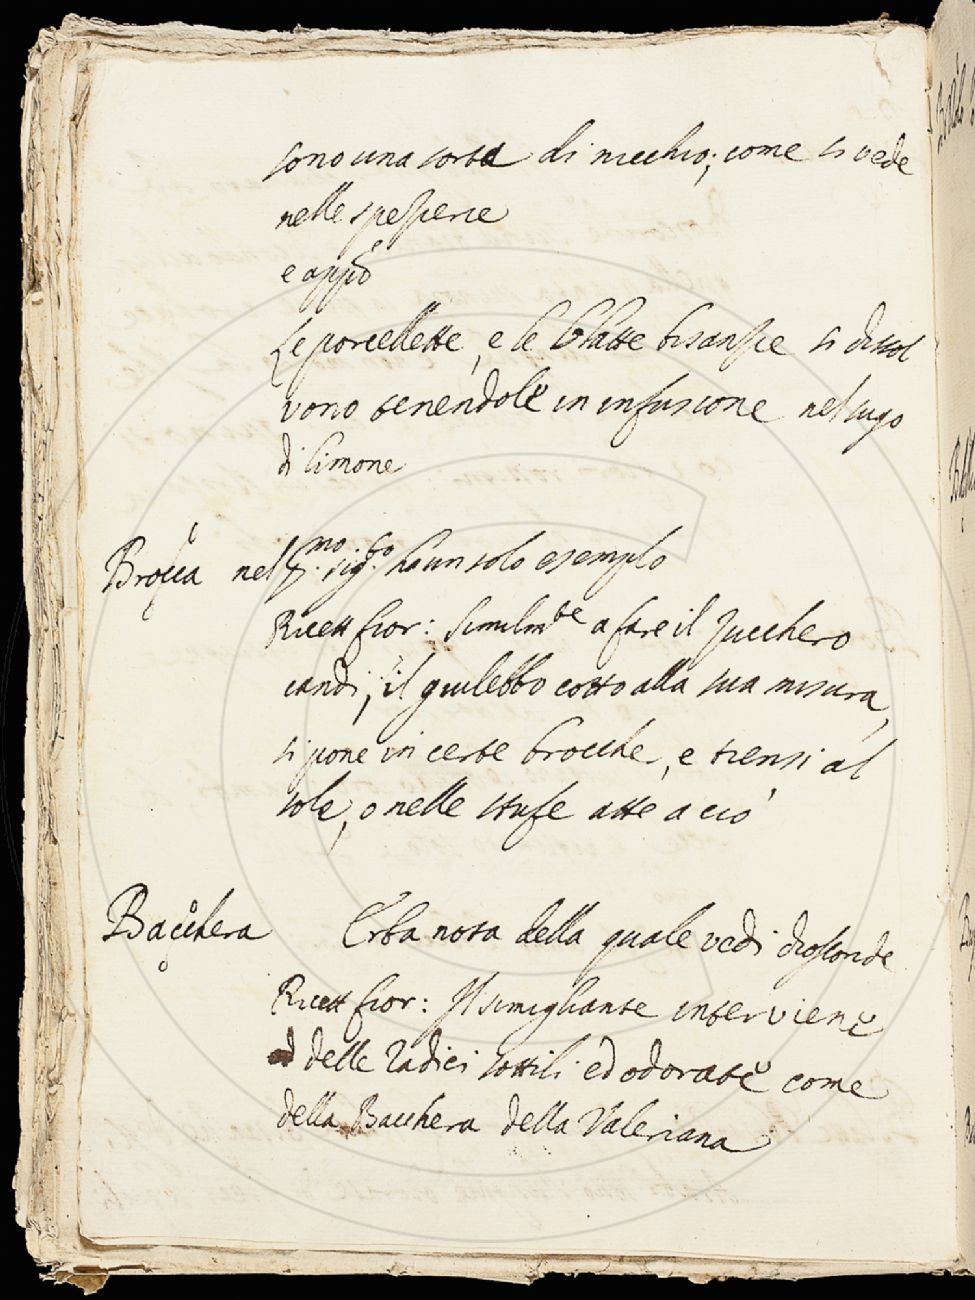 sono una sorta di nicchio; come si vede
nelle spezierie
e appo
Le porcellette, e le blatte bisanzie si dissol
vono tenendole in infusione nel sugo
di limone
Brocca nel 5.mo sig.to ha un solo esempio
Ricett fior: Similmte a fare il zucchero
candi, il giulebbo cotto alla sua misura,
si pone in certe brocche, e tiensi al
sole, o nelle stufe atte a ciò
Bacchera Erba nota della quale vedi dioscoride
Ricett fior: Il simigliante interviene
delle radici sottili ed odorate come
della Bacchera della Valeriana